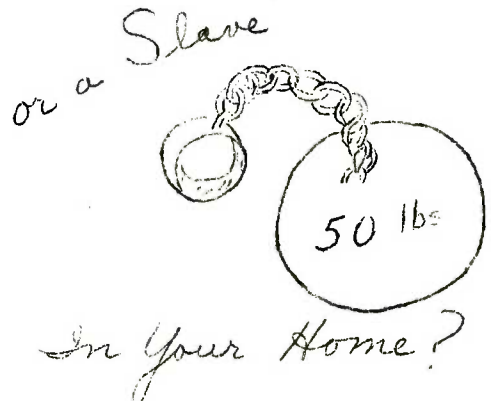 or a Slave
50 lbs
In Your Home?